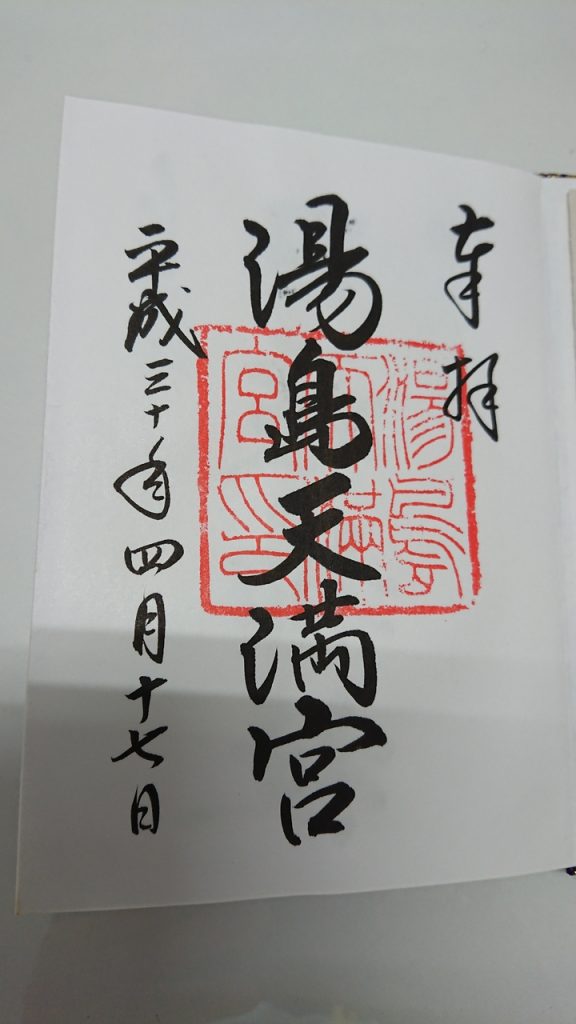 奉拝
湯島天満宮
平成三十年四月十七日
湯島
天満
宮印